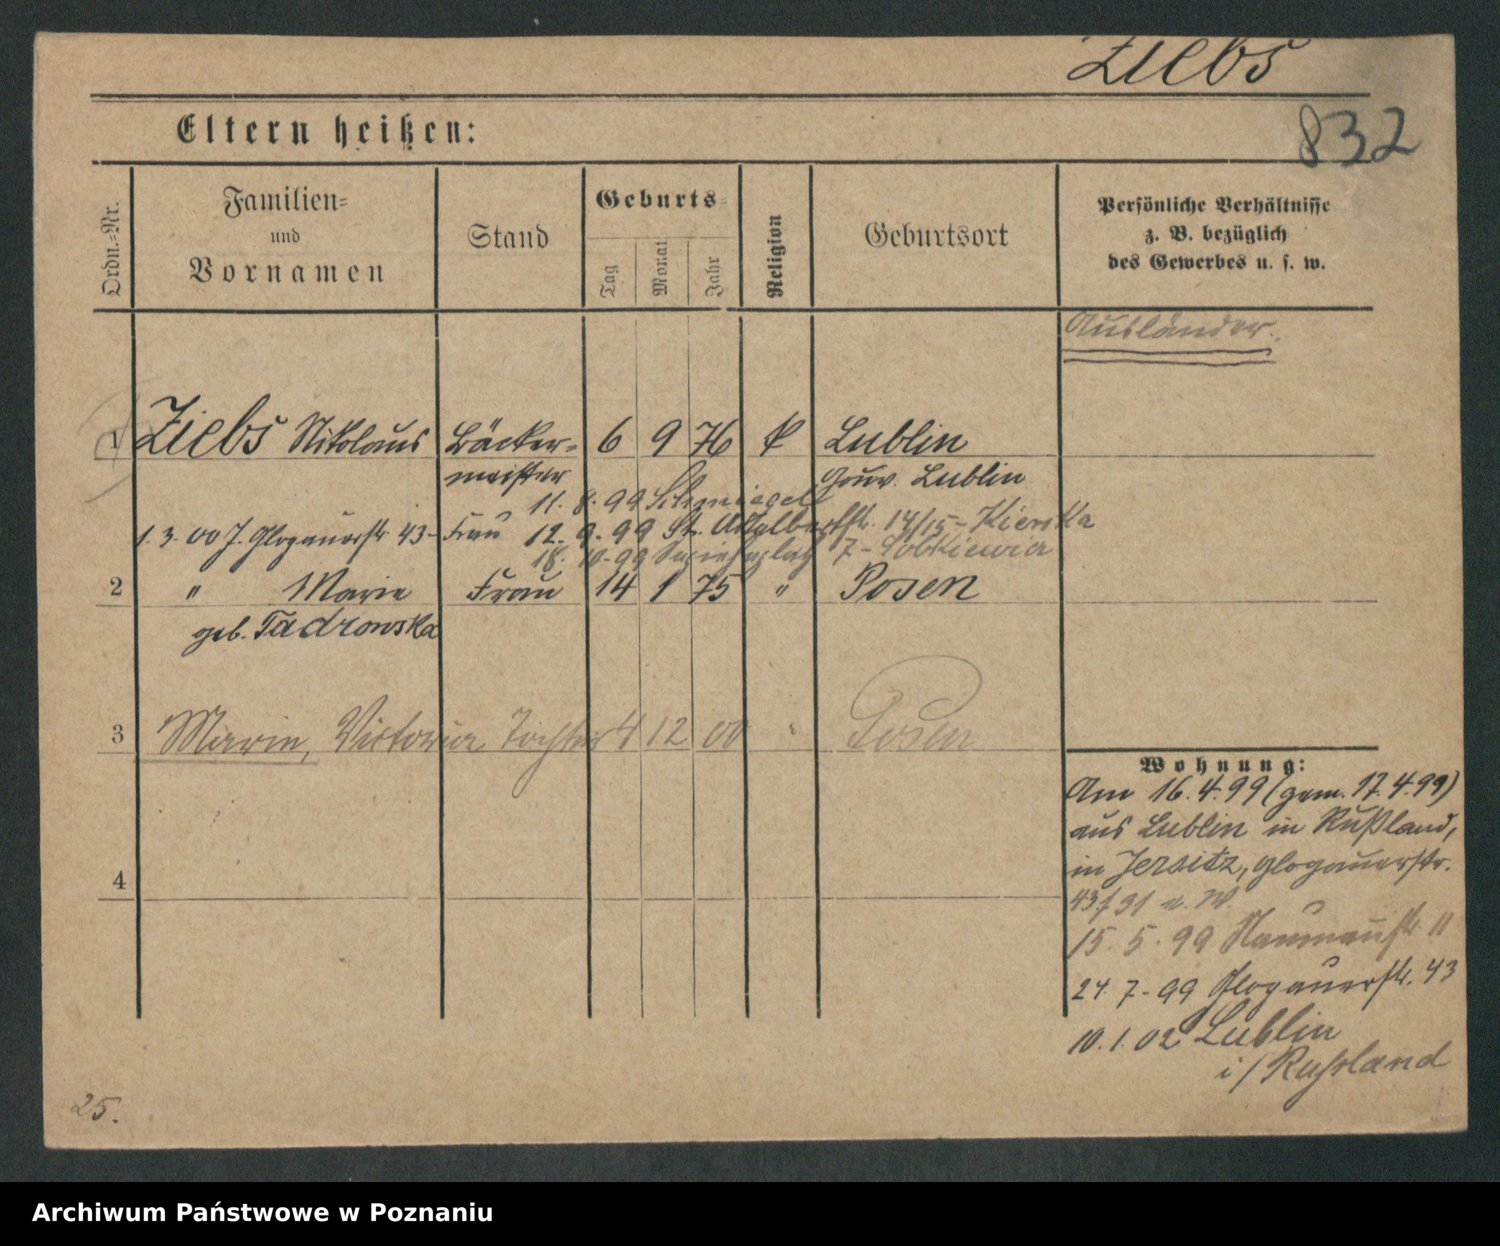 Ziebs
832
Eltern heißen:
Ordn.=Nr.
Familien=
und
Vornamen
Stand
Geburts=
Tag
Monat
Jahr
Religion
Geburtsort
Persönliche Verhältnisse
z. B. bezüglich
des Gewerbes u. s. w.
Ausländer.
1 Ziebs Nikolaus Bäcker= 6 9 76 k Lublin
meister Gouv. Lublin
11. 8. 99 Schmiegel
1. 3. 00 J. Glogauerstr. 43 - Frau 12. 9. 99 St. Adalbertstr. 14/15 -
18. 10. 99 7 - Sobkiewicz
2 " Marie Frau 14 1 75 " Posen
geb. Tadrowska
3 Marie, Victoria Tochter 4 12 00 " Posen
4
Wohnung:
Am 16. 4. 99 (gem. 17. 4. 99)
aus Lublin in Rußland,
in Jersitz, Glogauerstr.
15. 5. 99 Naumannstr. 11
24. 7. 99 Glogauerstr. 43
10. 1. 02 Lublin
i/Russland
25.
Archiwum Państwowe w Poznaniu